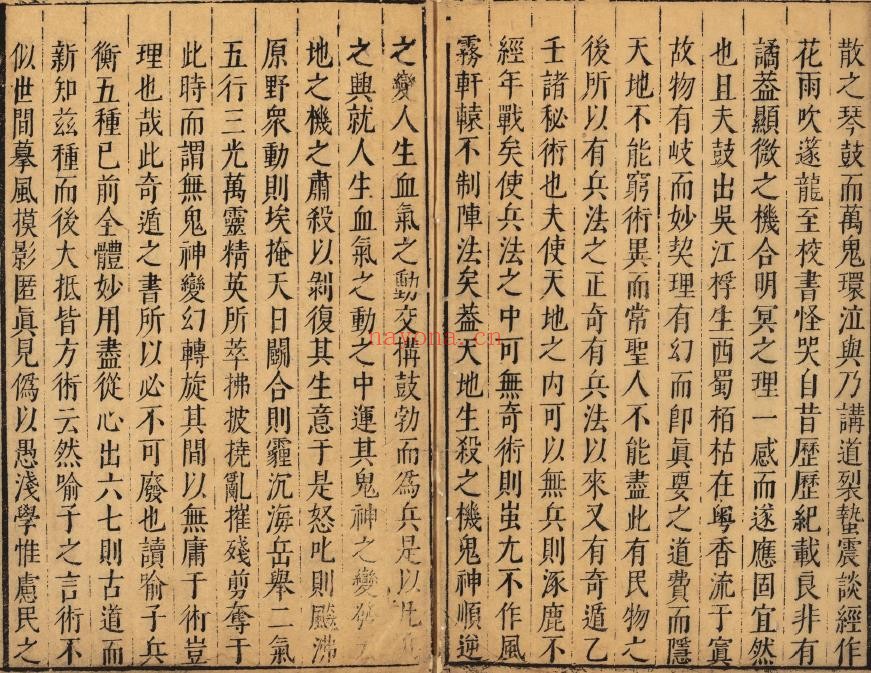 散之琴鼓而萬鬼環泣與乃講道裂蟄震談經作
花雨吹邃龍至校書怪哭自昔歷歷紀載良非有
譎葢顯微之機合明冥之理一感而遂應固宜然
也且夫鼓出吳江桴生西蜀栢枯在粵香流于寘
故物有岐而妙契理有幻而卽眞要之道費而隱
天地不能窮術異而常聖人不能盡此有民物之
後所以有兵法之正奇有兵法以來又有奇遁乙
壬諸秘術也夫使天地之內可以無兵則涿鹿不
經年戰矣使兵法之中可無奇術則蚩尤不作風
霧軒轅不制陣法矣葢天地生殺之機鬼神順逆
之變人生血氣之動交搆鼓勃而爲兵是以
之興就人生血氣之動之中運其鬼神之變
地之機之肅殺以剝復其生意于是怒叱則颷沸
原野衆動則埃掩天日闘合則霾沉海岳舉二氣
五行三光萬靈精英所萃拂披撓亂摧殘剪奪于
此時而謂無鬼神變幻轉旋其間以無庸于術豈
理也哉此奇遁之書所以必不可廢也讀喻子兵
衡五種已前全體妙用盡從心出六七則古道而
新知兹種而後大抵皆方術云然喻子之言術不
似世間摹風摸影匿眞見僞以愚淺學惟慮民之
nayona.cn